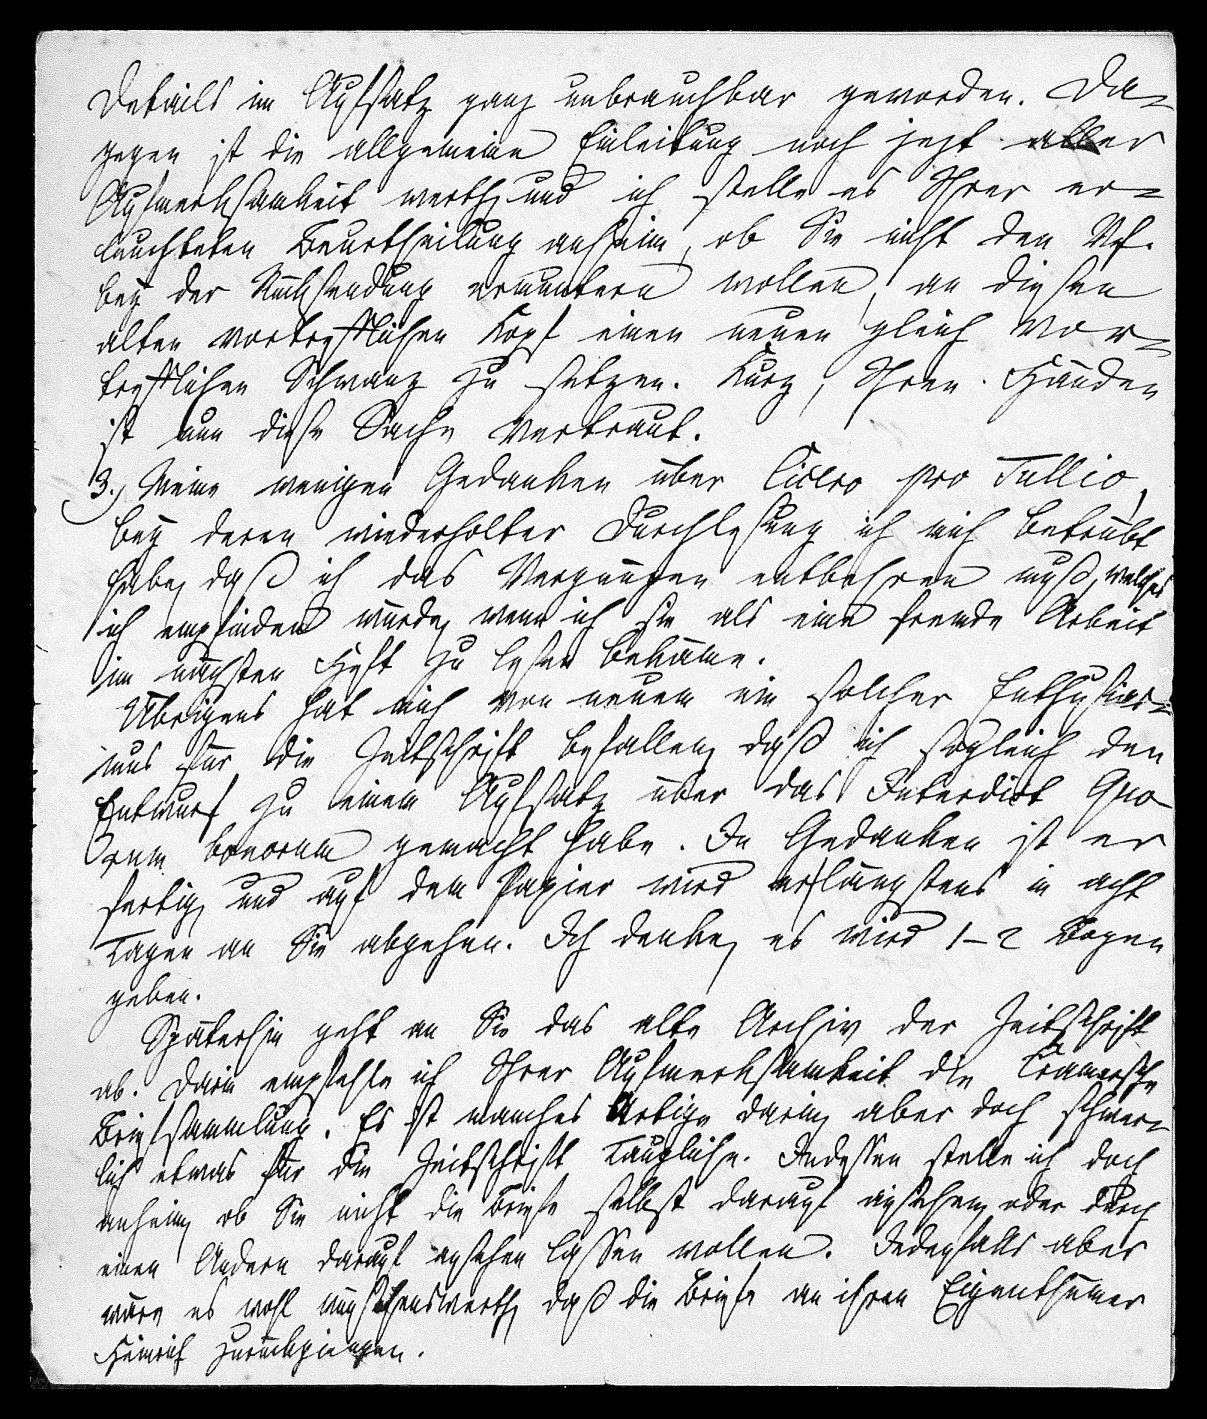 Details im Aufsatz ganz unbrauchbar geworden. Da-
gegen ist die allgemeine Einleitung noch jezt aller
Aufmerksamkeit werth, und ich stelle es Ihrer er-
leuchteten Beurtheilung anheim, ob Sie nicht den Vf.
bey der Rücksendung ermuntern wollen, an diesen
alten vortrefflichen Kopf einen neuen gleich vor-
trefflichen Schwanz zu setzen. Kurz, Ihren Händen
ist nun diese Sache vertraut.
3.) Meine wenigen Gedanken über Cicero pro Tullio,
bey deren wiederholter Durchlesung ich mich betrübt
habe, daß ich das Vergnügen entbehren muß, welches
ich empfinden würde, wenn ich sie als eine fremde Arbeit
im nächsten Heft zu lesen bekäme.
Übrigens hat mich von neuem ein solcher Enthusias-
mus für die Zeitschrift befallen, daß ich sogleich den
Entwurf zu einem Aufsatz über das Interdict Quo
rum bonorum gemacht habe. In Gedanken ist er
fertig, und auf dem Papier wird er längstens in acht
Tagen an Sie abgehen. Ich denke, es wird 1-2 Bogen
geben.
Späterhin geht an Sie das alte Archiv der Zeitschrift
ab. Darin empfehle ich Ihrer Aufmerksamkeit die Cramersche
Briefsammlung. Es ist manches Artige darin, aber doch schwer-
lich etwas für die Zeitschrift Taugliche. Indessen stelle ich doch
anheim, ob Sie nicht die Briefe selbst darauf ansehen, oder durch
einen Andern darauf ansehen lassen wollen. Jedenfalls aber
wäre es wohl wünschenswerth, daß die Briefe an ihren Eigenthümer
Heinrich zurückgiengen.